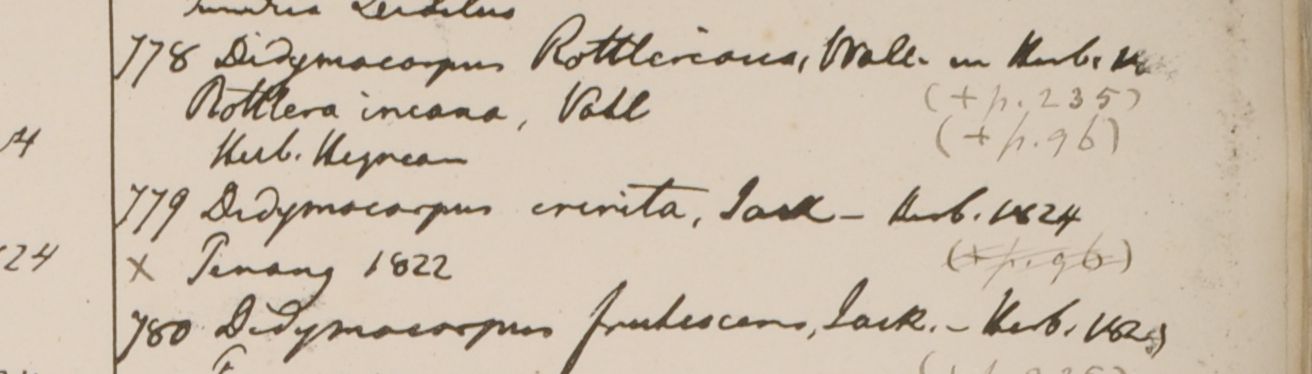 778 Didymocarpus Rottleriana, Wall. in Herb.
(+ p. 235)
Rottlera incana, Vahl
(+ p. 96)
Herb. Heynean
779 Didymocarpus crinita, Jack – Herb. 1824
(+ p. 96)
24
X Penang 1822
780 Didymocarpus frutescens, Jack. – Herb.